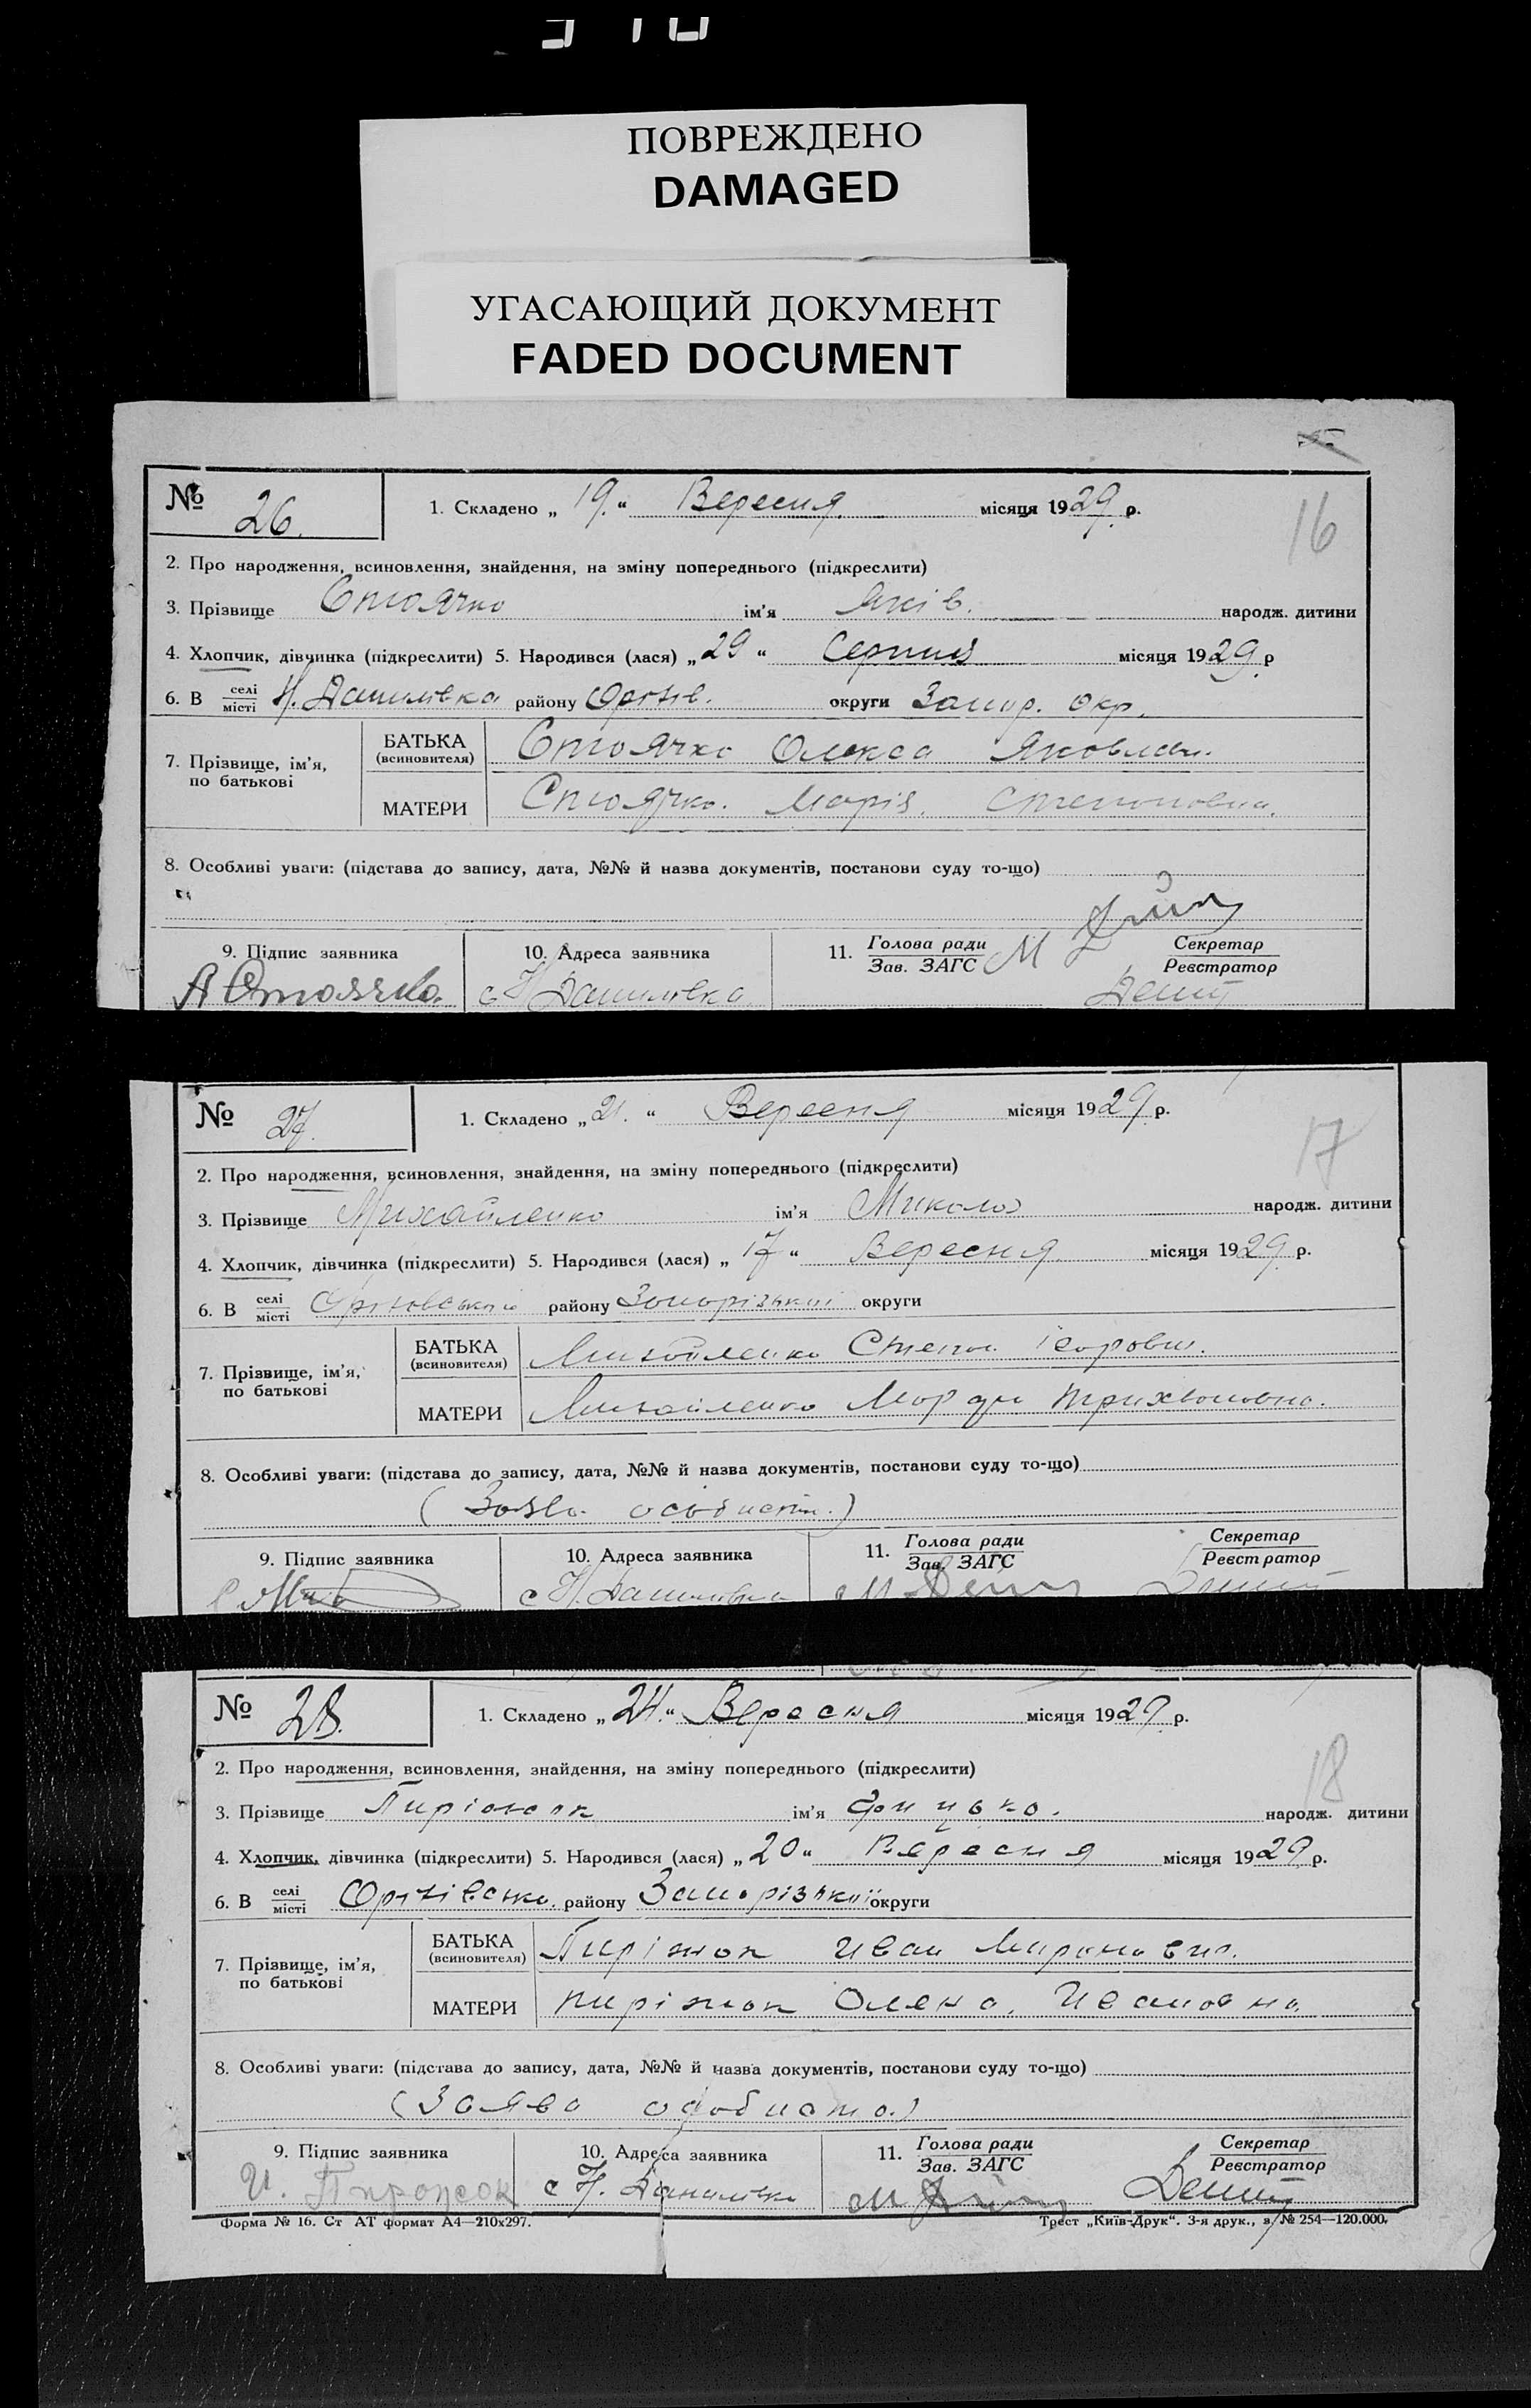 ПОВРЕЖДЕНО
DAMAGED
УГАСАЮЩИЙ ДОКУМЕНТ
FADED DOCUMENT
№ 26. 1. Складено „ 19. “ Вересня місяця 1929 р.
16
2. Про народження, всиновлення, знайдення, на зміну попереднього (підкреслити)
3. Прізвище Стоячко ім'я Яків. народж. дитини
4. Хлопчик, дівчинка (підкреслити) 5. Народився (лася) „ 29 “ Серпня місяця 1929 р
6. В селі місті Н. Данилівка району Оріхів. округи Запор. окр.
7. Прізвище, ім'я, по батькові
БАТЬКА (всиновителя) Стоячко Олекса Яковлев.
МАТЕРИ Стоячко. Марія. Степоновна.
8. Особливі уваги: (підстава до запису, дата, №№ й назва документів, постанови суду то-що)
9. Підпис заявника 10. Адреса заявника 11. Голова ради Зав. ЗАГС Секретар Реєстратор
А Стоячко. с Н Данилівка
№ 27. 1. Складено „ 21. “ Вересня місяця 1929 р.
17
2. Про народження, всиновлення, знайдення, на зміну попереднього (підкреслити)
3. Прізвище Михайленко ім'я Микола народж. дитини
4. Хлопчик, дівчинка (підкреслити) 5. Народився (лася) „ 17 “ Вересня місяця 1929 р.
6. В селі місті району Запорізької округи
7. Прізвище, ім'я, по батькові
БАТЬКА (всиновителя) Михайленко Степан
МАТЕРИ Михайленко Трихвоновна.
8. Особливі уваги: (підстава до запису, дата, №№ й назва документів, постанови суду то-що)
(Заява особиста.)
9. Підпис заявника 10. Адреса заявника 11. Голова ради Зав. ЗАГС Секретар Реєстратор
с Н. Данилівка
№ 28. 1. Складено „ 24. “ Вересня місяця 1929 р.
18
2. Про народження, всиновлення, знайдення, на зміну попереднього (підкреслити)
3. Прізвище Пиріжок ім'я народж. дитини
4. Хлопчик, дівчинка (підкреслити) 5. Народився (лася) „ 20 “ Вересня місяця 1929 р.
6. В селі місті Оріхівсько. району Запорізької округи
7. Прізвище, ім'я, по батькові
БАТЬКА (всиновителя) Пиріжок Иван Миронович.
МАТЕРИ пиріжок Олена. Ивановна.
8. Особливі уваги: (підстава до запису, дата, №№ й назва документів, постанови суду то-що)
(Заява особиста.)
9. Підпис заявника 10. Адреса заявника 11. Голова ради Зав. ЗАГС Секретар Реєстратор
И. Пирожок с Н. Данилівка
Форма № 16. Ст АТ формат А4—210х297. Трест „Київ-Друк“. 3-я друк., з. № 254—120.000.